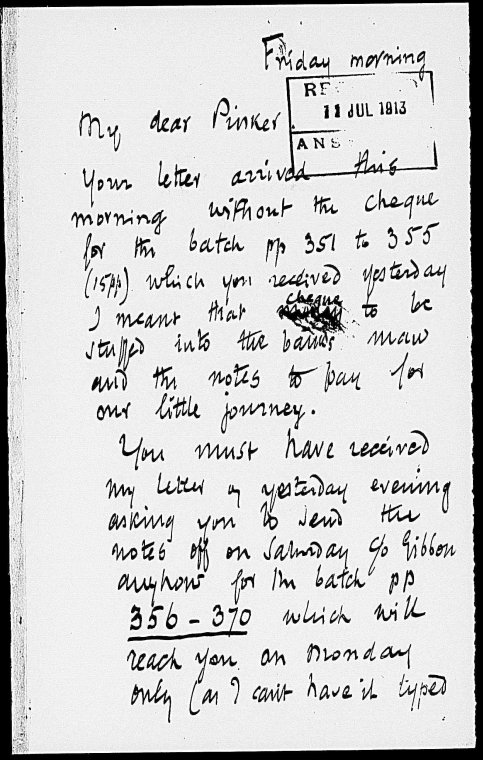 Friday morning
11 JUL 1913
ANS
My dear Pinker
Your letter arrived this
morning without the cheque
for the batch pp 351 to 355
(15pp) which you received yesterday
I meant that cheque to be
stuffed into the bank's maw
and the notes to pay for
our little journey.
You must have received
my letter of yesterday evening
asking you to send the
notes off on Saturday c/o Gibbon
anyhow for the batch pp
356 – 370 which will
reach you on Monday
only (as I can't have it typed